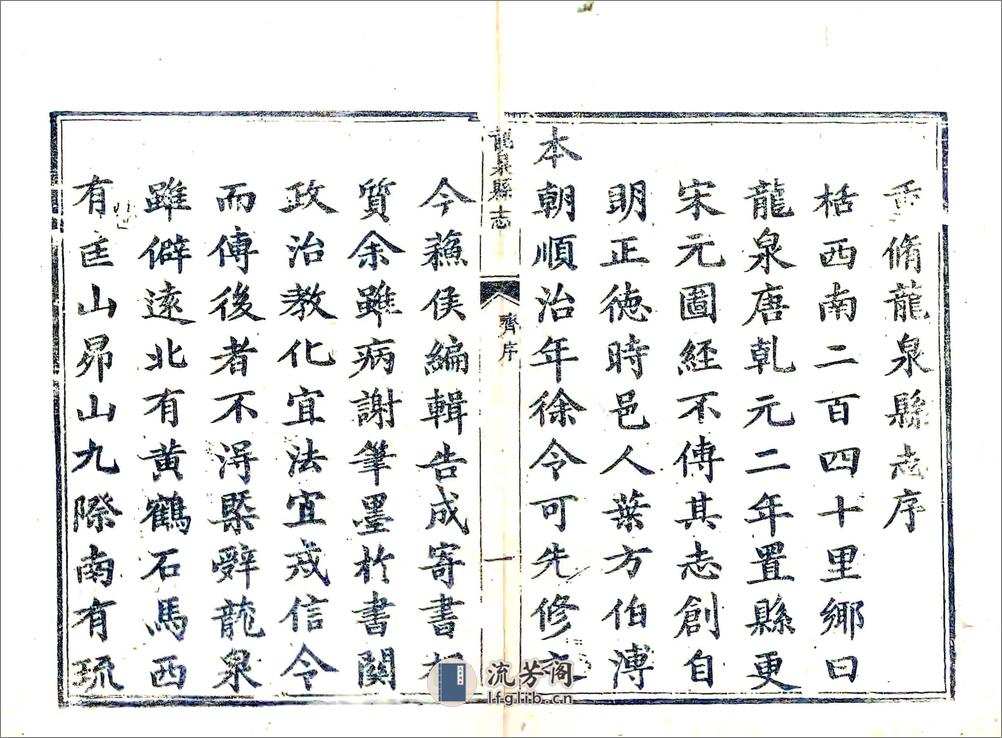 重脩龍泉縣志序
栝西南二百四十里鄉曰
龍泉唐乹元二年置縣更
宋元圖經不傳其志創自
明正德時邑人葉方伯溥
本朝順治年徐令可先修
龍泉縣志
齊序
一
今蘓侯編輯告成寄書
質余雖病謝筆墨扵書関
政治教化宜法宜戒信今
而傳後者不淂槩辭龍泉
雖僻逺北有黄鶴石馬西
有匡山昴山九際南有琉
流芳阁
lfglib.cn